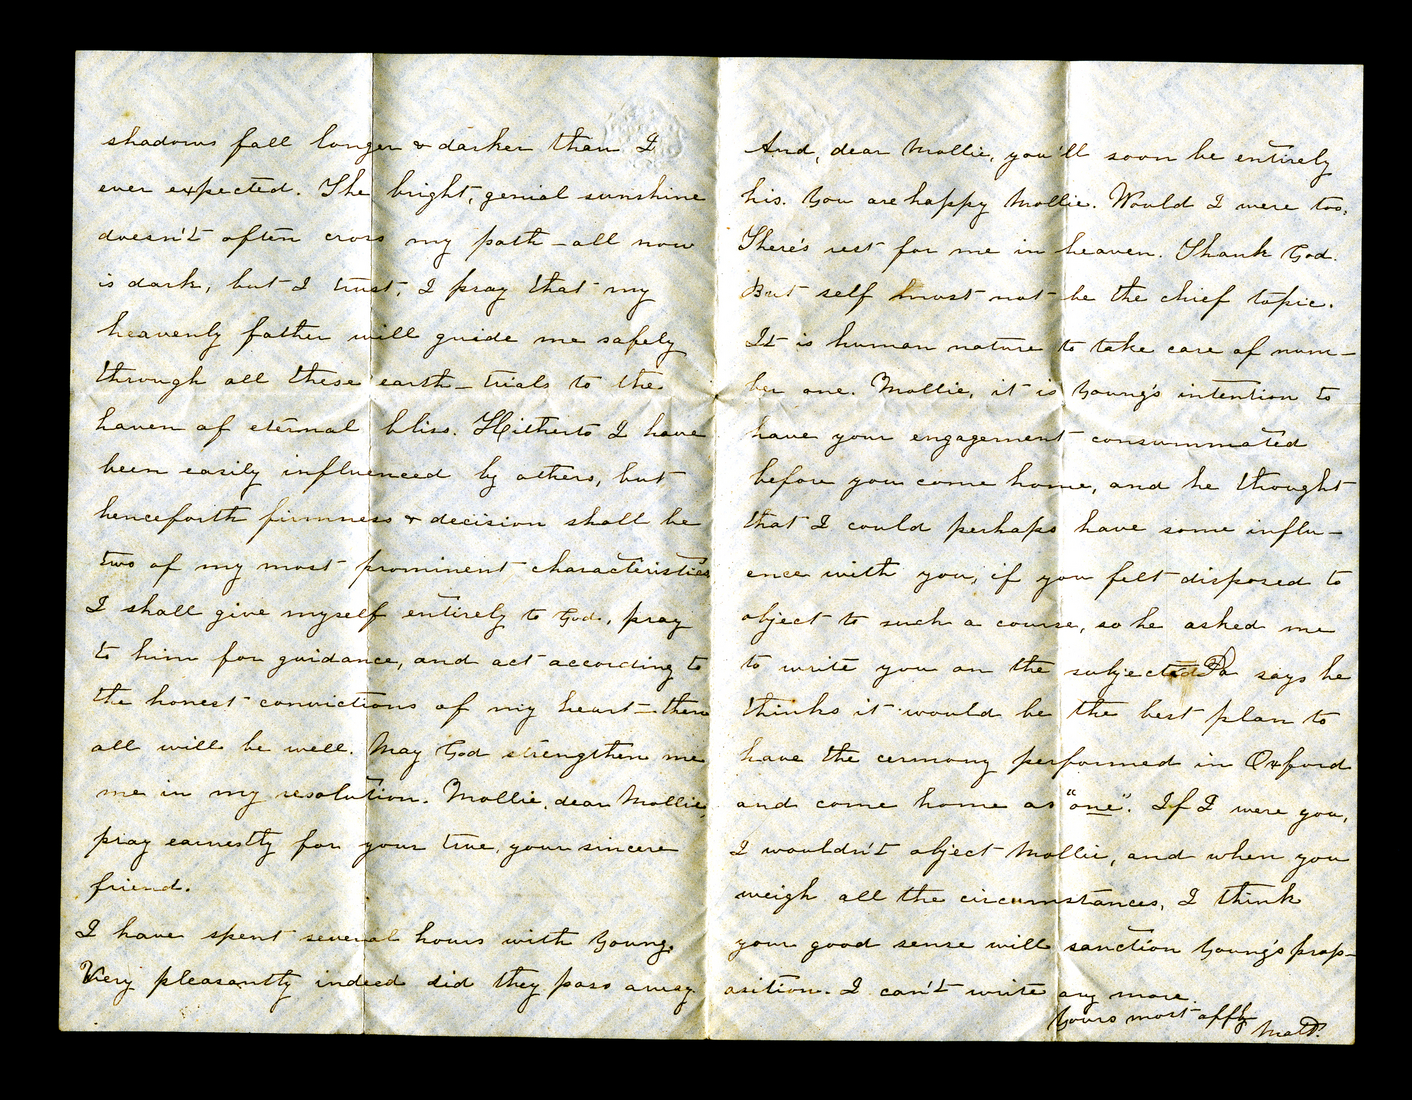 shadows fall longer & darker than I
ever expected. The bright, genial sunshine
doesn't often cross my path – all now
is dark, but I trust, I pray that my
heavenly father will guide me safely
through all these earth – trials to the
haven of eternal bliss. Hitherto I have
been easily influenced by others, but
henceforth firmness & decision shall be
two of my most prominent characteristics
I shall give myself entirely to God, pray
to him for guidance, and act according to
the honest convictions of my heart – then
all will be well. May God strengthen me
me in my resolution. Mollie, dear Mollie,
pray earnestly for your true, your sincere
friend.
I have spent several hours with Young.
Very pleasantly indeed did they pass away.
And, dear Mollie, you'll soon be entirely
his. You are happy Mollie. Would I were too,
There's rest for me in heaven. Thank God.
But self must not be the chief topic.
It is human nature to take care of num–
ber one. Mollie, it is Young's intention to
have your engagement consummated
before you come home, and he thought
that I could perhaps have some influ–
ence with you, if you felt disposed to
object to such a course, so he asked me
to write you on the subject Pa says he
thinks it would be the best plan to
have the cermony performed in Oxford
and come home as "one". If I were you,
I wouldn't object Mollie, and when you
weigh all the circumstances, I think
your good sense will sanction Young's prop–
osition. I can't write any more.
Yours most affly